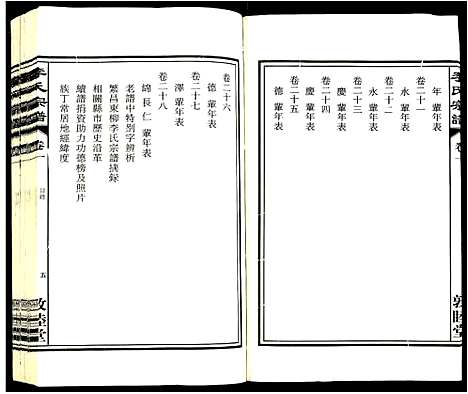 李氏宗譜
卷一
敦睦堂
年 輩年表
卷二十一
永 輩年表
卷二十二
永 輩年表
卷二十三
慶 輩年表
卷二十四
慶 輩年表
卷二十五
德 輩年表
卷二十六
德 輩年表
卷二十七
澤 輩年表
卷二十八
綿長仁 輩年表
老譜中特別字辨析
繁昌東柳李氏宗譜摘錄
相關縣市歷史沿革
續譜捐資助力功德榜及照片
族丁常居地經緯度
李氏宗譜
卷一
目錄
五
敦睦堂